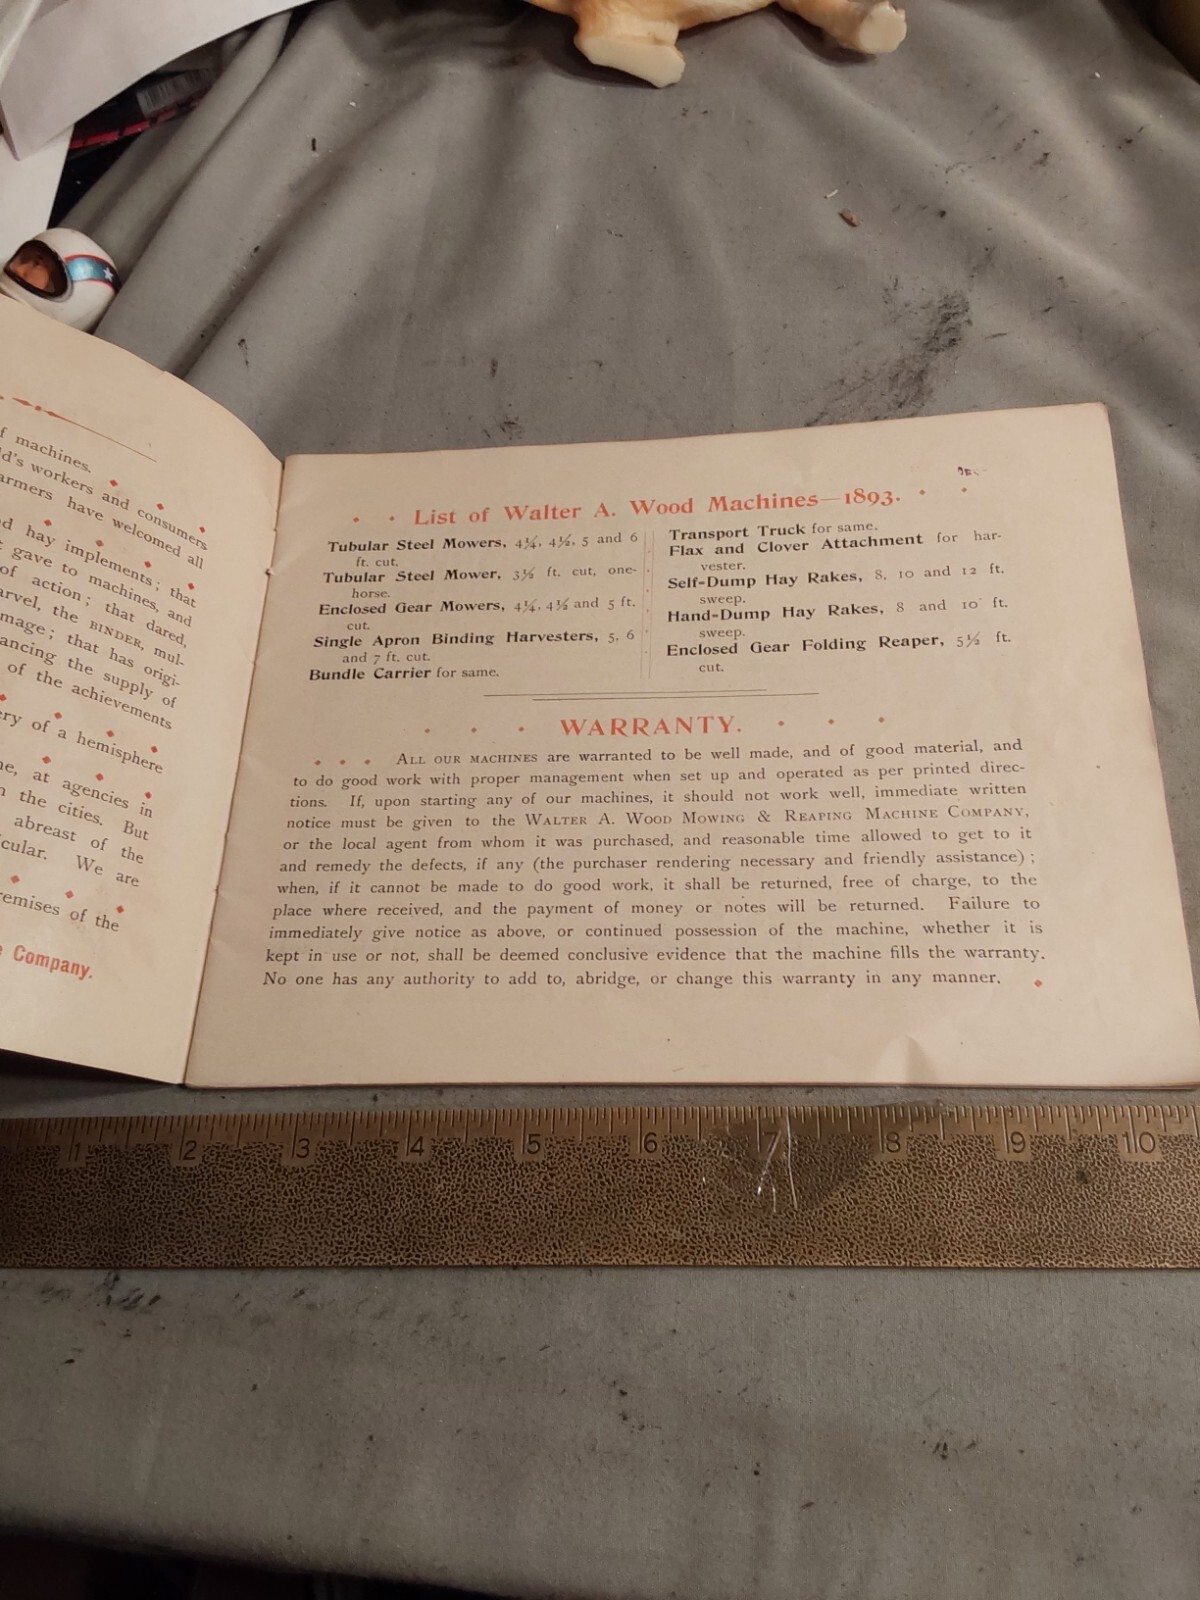 f machines.
ld's workers and consumers
armers have welcomed all
d hay implements; that
t gave to machines, and
of action; that dared,
arvel, the BINDER, mul-
mage; that has origi-
ancing the supply of
of the achievements
ery of a hemisphere
ne, at agencies in
n the cities. But
abreast of the
cular. We are
remises of the
e Company.
List of Walter A. Wood Machines—1893.
Tubular Steel Mowers, 4¼, 4½, 5 and 6
ft. cut.
Tubular Steel Mower, 3½ ft. cut, one-
horse.
Enclosed Gear Mowers, 4¼, 4½ and 5 ft.
cut.
Single Apron Binding Harvesters, 5, 6
and 7 ft. cut.
Bundle Carrier for same.
Transport Truck for same.
Flax and Clover Attachment for har-
vester.
Self-Dump Hay Rakes, 8, 10 and 12 ft.
sweep.
Hand-Dump Hay Rakes, 8 and 10 ft.
sweep.
Enclosed Gear Folding Reaper, 5½ ft.
cut.
WARRANTY.
ALL OUR MACHINES are warranted to be well made, and of good material, and
to do good work with proper management when set up and operated as per printed direc-
tions. If, upon starting any of our machines, it should not work well, immediate written
notice must be given to the WALTER A. WOOD MOWING & REAPING MACHINE COMPANY,
or the local agent from whom it was purchased, and reasonable time allowed to get to it
and remedy the defects, if any (the purchaser rendering necessary and friendly assistance);
when, if it cannot be made to do good work, it shall be returned, free of charge, to the
place where received, and the payment of money or notes will be returned. Failure to
immediately give notice as above, or continued possession of the machine, whether it is
kept in use or not, shall be deemed conclusive evidence that the machine fills the warranty.
No one has any authority to add to, abridge, or change this warranty in any manner.
1 2 3 4 5 6 7 8 9 10